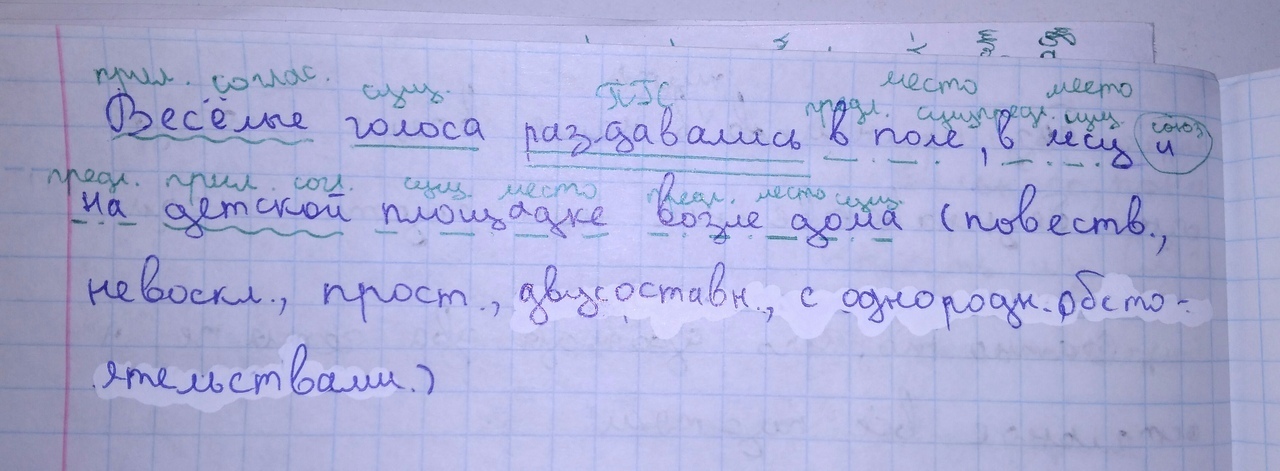 место место
прил. соглас. сущ. ПГС предл. сущ. предл. сущ. союз
Весёлые голоса раздавались в поле, в лесу и
предл. прил. согл. сущ. место предл. место сущ.
на детской площадке возле дома (повеств.,
невоскл., прост., двусоставн., с однородн. обсто-
ятельствами.)